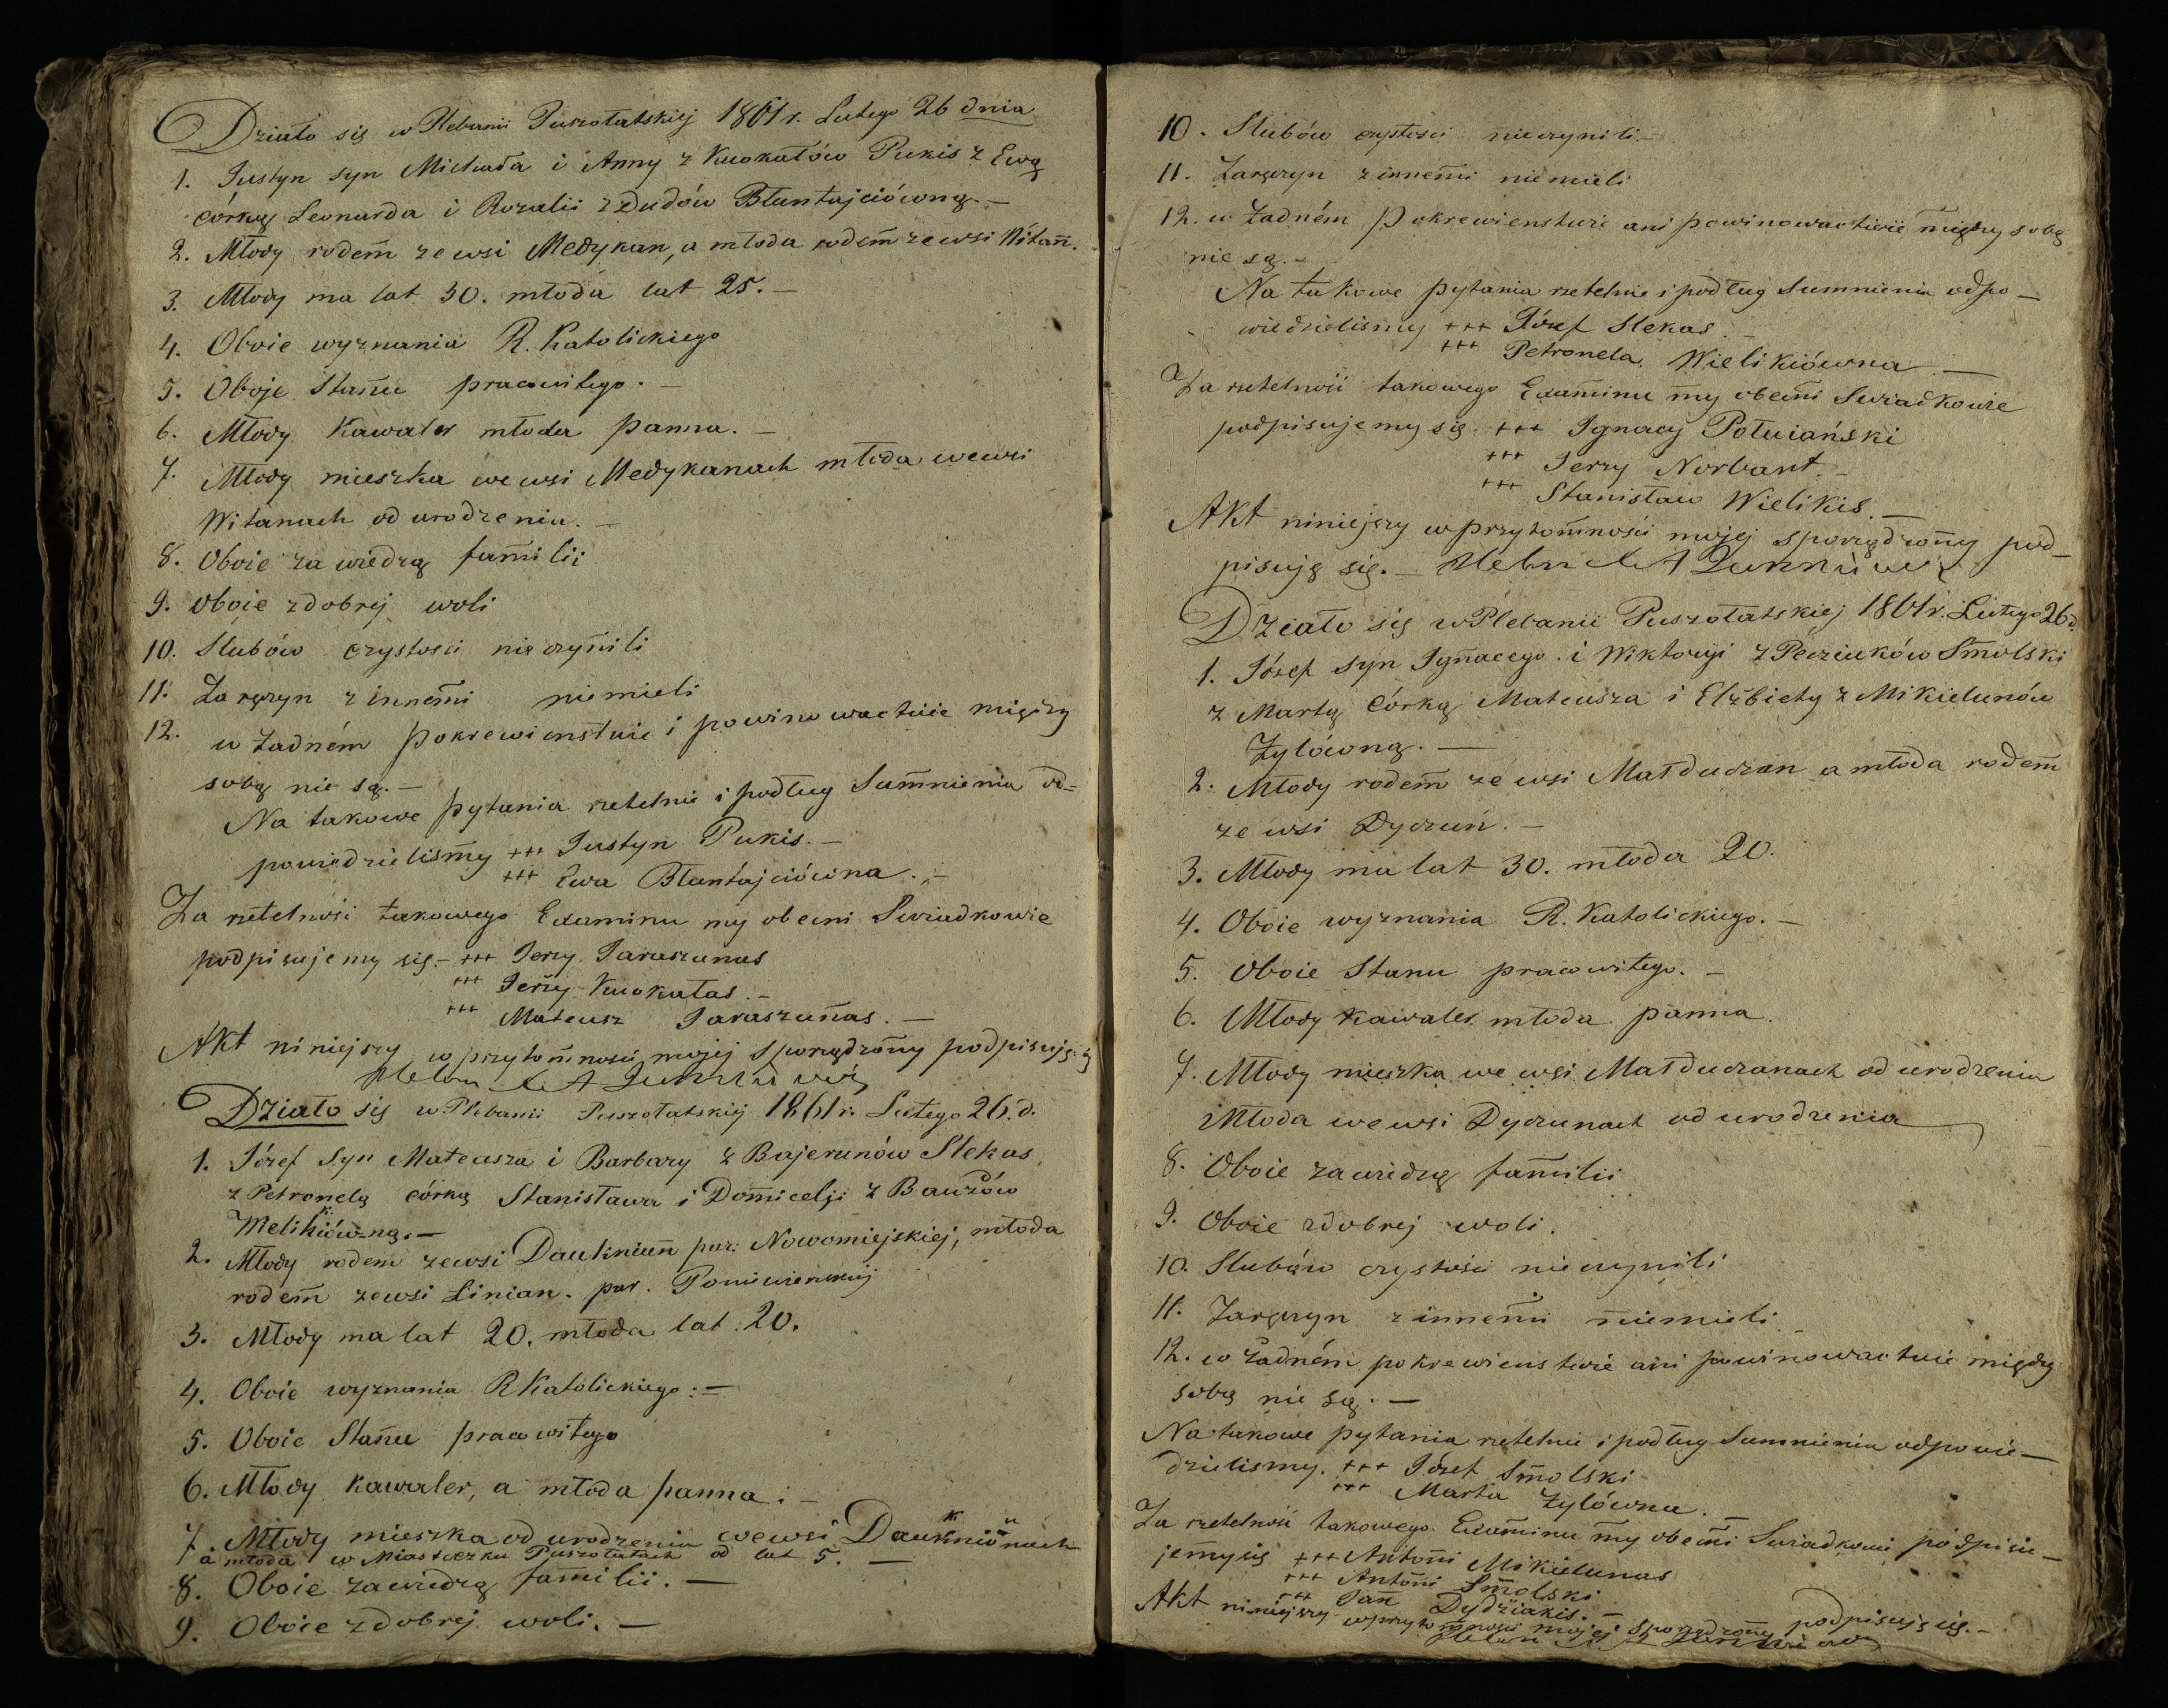 Działo się w Plebanii Puszołatskiej 1861 r. Lutego 26 dnia
1. Justyn syn Michała i Anny z Kuokałów Pukis z Ewą
córką Leonarda i Rozalii z Dudów Bluntajciówną. —
2. Młody rodem ze wsi Medykan, a młoda rodem ze wsi Witań.
3. Młody ma lat 30. młoda lat 25. —
4. Oboie wyznania R. Katolickiego
5. Oboje Stanu pracowitego. —
6. Młody Kawaler młoda panna. —
7. Młody mieszka we wsi Medykanach młoda we wsi
Witanach od urodzenia. —
8. Oboie za wiedzą familii
9. Oboie z dobrej woli
10. Slubów czystosci nie czynili
11. Zaręczyn z innemi niemieli
12. w żadném pokrewienstwie i powinowactwie między
sobą nie są. —
Na takowe pytania rzetelnie i podług Sumnienia od=
powiedzielismy +++ Justyn Pukis. —
+++ Ewa Bluntajciówna. —
Za rzetelność takowego Examinu my obecni Swiadkowie
podpisujemy się. — +++ Jerzy Jaraszunas
+++ Jerzy Kuokałas. —
+++ Mateusz Jaraszunas. —
Akt niniejszy w przytomności mojej sporządzony podpisuję
Działo się w Plebanii Puszołatskiej 1861 r. Lutego 26. d.
1. Józef Syn Mateusza i Barbary z Bajerunów Slekas
z Petronelą córką Stanisława i Domicelji z Baużów
2. Młody rodem ze wsi Daukniun par: Nowomiejskiej, młoda
rodem ze wsi Linian. par. Poniewiezskiej
3. Młody ma lat 20. młoda lat 20.
4. Oboie wyznania R Katolickiego: —
5. Oboie Stanu pracowitego
6. Młody kawaler, a młoda panna. —
7. Młody mieszka od urodzenia we wsi Daukniunach
a młoda w Miasteczku Puszołatach od lat 5. —
8. Oboie za wiedzą familii. —
9. Oboie z dobrej woli. —
10. Slubów czystosci nieczynili. —
11. Zaręczyn z innemi niemieli
12. w żadném pokrewienstwie ani powinowactwie między sobą
nie są. —
Na takowe pytania rzetelnie i podług Sumnienia odpo—
wiedzielismy +++ Józef Slekas —
+++ Petronela Wielikiówna. —
Za rzetelność takowego Examinu my obecni Swiadkowie
podpisujemy się. +++ Ignacy Połuiański
+++ Jerzy Norbant. —
+++ Stanisław Wielikis. —
Akt niniejszy w przytomności mojej sporządzony pod—
pisuję się. —
Działo się w Plebanii Puszołatskiej 1861 r. Lutego 26 d.
1. Józef syn Ignacego i Wiktoryi z Pecziuków Smolski
z Martą córką Mateusza i Elżbiety z Mikielunów
Żylówną. —
2. Młody rodem ze wsi Małduczan a młoda rodem
ze wsi Dyczuń. —
3. Młody ma lat 30. młoda 20.
4. Oboie wyznania R. Katolickiego. —
5. Oboie Stanu pracowitego. —
6. Młody kawaler młoda panna.
7. Młody mieszka we wsi Małduczanach od urodzenia
Młoda we wsi Dyczunach od urodzenia
8. Oboie za wiedzą familii
9. Oboie z dobrej woli.
10. Slubów czystości nieczynili
11. Zaręczyn z innemi niemieli
12. w żadném pokrewienstwie ani powinowactwie między
sobą nie są. —
Na takowe pytania rzetelnie i podług Sumnienia odpowie—
dzielismy. +++ Józef Smolski
+++ Marta Żylówna. —
Za rzetelność takowego Examinu my obecni Swiadkowie podpisu—
jemy się +++ Antoni Mikielunas
+++ Antoni Smolski
+++ Jan Dydziakis. —
Akt niniejszy w przytomności mojej sporządzony podpisuję się. —